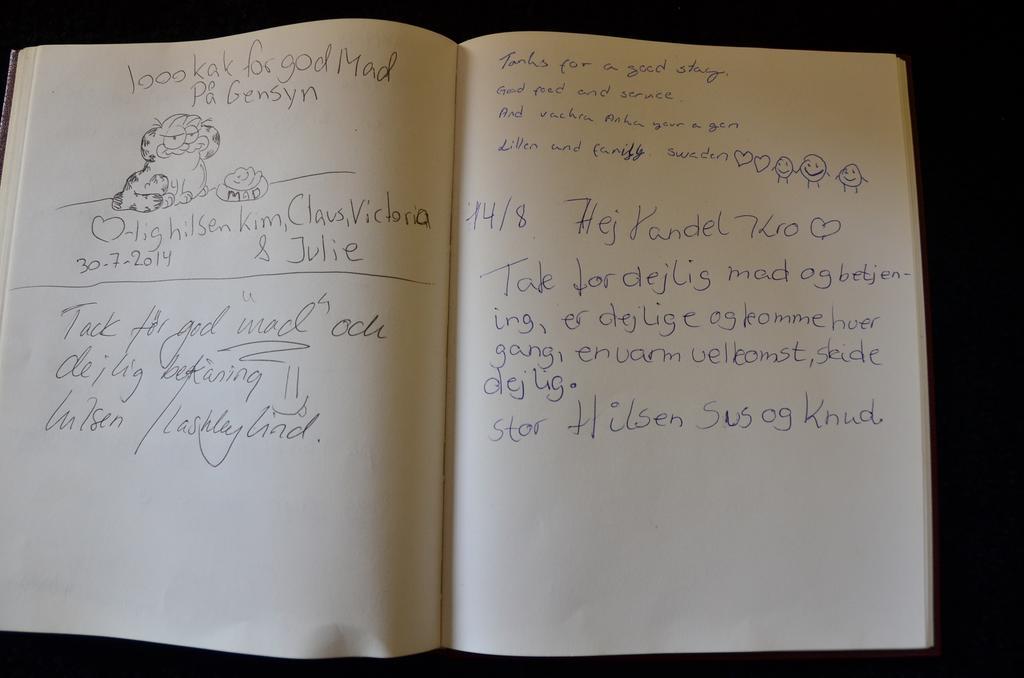 1000 kak for god Mad
På Gensyn
MAD
-lig hilsen Kim, Claus, Victoria
& Julie
30-7-2014
Tack för god mad och
dejlig betjäning !!
hilsen
Tanks for a good stay.
Good food and service.
And
Lillen and family. Sweden
14/8 Hej Vandel Kro
Tak for dejlig mad og betjen-
ing, er dejlige og komme hver
gang, en varm velkomst, skide
dejlig.
stor Hilsen Sus og Knud.